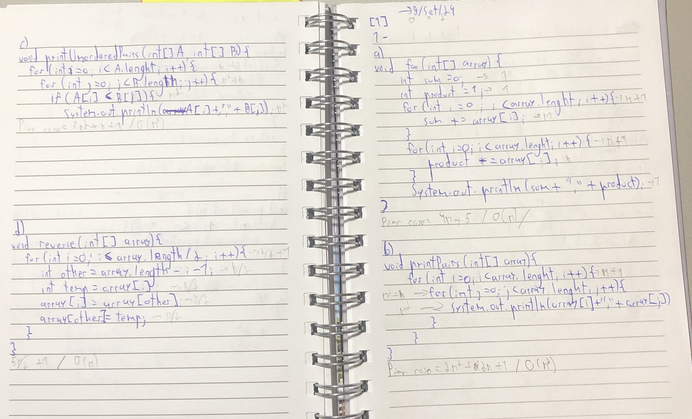 c)
void printUnorderedPairs (int[] A, int[] B){
for(int i=0; i<A.lenght; i++){
for (int j=0; j<B.length; j++){
if (A[i] < B[j]){
System.out.println(A[i]+","+B[j]);
d)
void reverse (int[] array){
for(int i=0; i<array.length/2; i++){
int other = array.length - i - 1;
int temp = array[i];
array[i] = array[other];
array[other] = temp;
}
}
/ O(n)
→19/Set/24
[1]
1-
a)
void foo (int[] array) {
int sum =0; → 1
int product =1; → 1
for (int i=0 ; i<array.lenght; i++){ → n+1
sum += array[i]; → n
}
for(int i=0; i<array.lenght, i++) { → n+1
product *= array[i];
}
System.out.println(sum + "," + product); → 1
}
Pior caso= 4n+5 / O(n)
b)
void printPairs (int[] array){
for (int i=0; i<array.lenght; i++){
→ for(int j=0; j<array.lenght; j++){
n² → System.out.println(array[i]+","+array[j])
}
}
}
Pior caso = / O(n²)